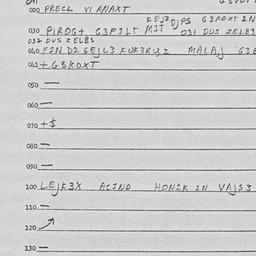 020 PRECL VI ANAXT
030 PIROG+ G3PILT MIT 031 DUS ZELB3
032 DUS ZELB3
040 FIN DI GEJL3 KUK3RYZ MALAJ G3
041 + G3KOXT
050 —
060 —
070 +$
080 —
090 —
100 LEJK3X ACIND HONIK IN VAJS3
110 —
120
130 —